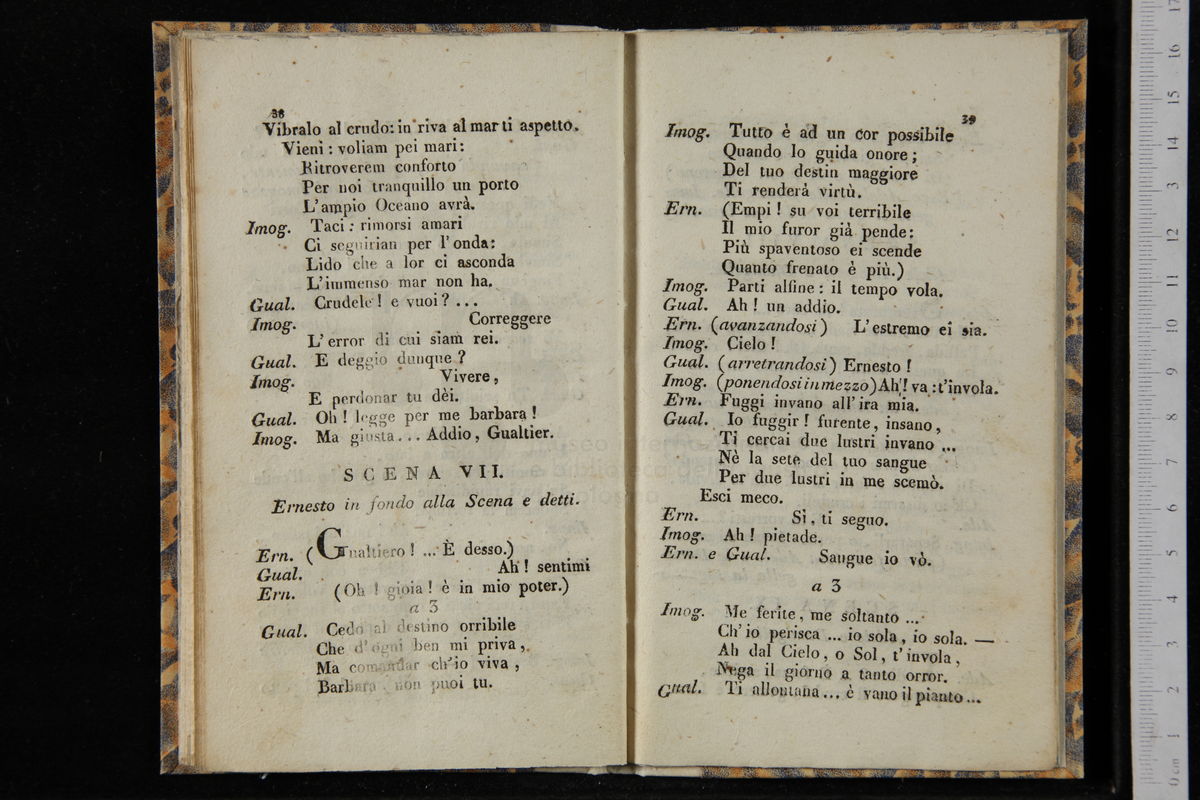 38
Vibralo al crudo: in riva al mar ti aspetto.
Vieni : voliam pei mari:
Ritroverem conforto
Per noi tranquillo un porto
L'ampio Oceano avrà.
Imog. Taci : rimorsi amari
Ci seguirian per l'onda:
Lido che a lor ci asconda
L'immenso mar non ha.
Gual. Crudele ! e vuoi ? ...
Imog. Correggere
L'error di cui siam rei.
Gual. E deggio dunque ?
Imog. Vivere,
E perdonar tu dèi.
Gual. Oh ! legge per me barbara !
Imog. Ma giusta... Addio, Gualtier.
SCENA VII.
Ernesto in fondo alla Scena e detti.
Ern. (Gualtiero ! ... È desso.)
Gual. Ah ! sentimi
Ern. (Oh ! gioia ! è in mio poter.)
a 3
Gual. Cedo al destino orribile
Che d'ogni ben mi priva,
Ma comandar ch'io viva,
Barbara, non puoi tu.
39
Imog. Tutto è ad un cor possibile
Quando lo guida onore ;
Del tuo destin maggiore
Ti renderà virtù.
Ern. (Empi ! su voi terribile
Il mio furor già pende:
Più spaventoso ei scende
Quanto frenato è più.)
Imog. Parti alfine : il tempo vola.
Gual. Ah ! un addio.
Ern. (avanzandosi) L'estremo ei sia.
Imog. Cielo !
Gual. (arretrandosi) Ernesto !
Imog. (ponendosi in mezzo) Ah ! va : t'invola.
Ern. Fuggi invano all'ira mia.
Gual. Io fuggir ! furente, insano,
Ti cercai due lustri invano ...
Nè la sete del tuo sangue
Per due lustri in me scemò.
Esci meco.
Ern. Sì, ti seguo.
Imog. Ah ! pietade.
Ern. e Gual. Sangue io vò.
a 3
Imog. Me ferite, me soltanto ...
Ch'io perisca ... io sola, io sola. —
Ah dal Cielo, o Sol, t'invola,
Nega il giorno a tanto orror.
Gual. Ti allontana ... è vano il pianto ...